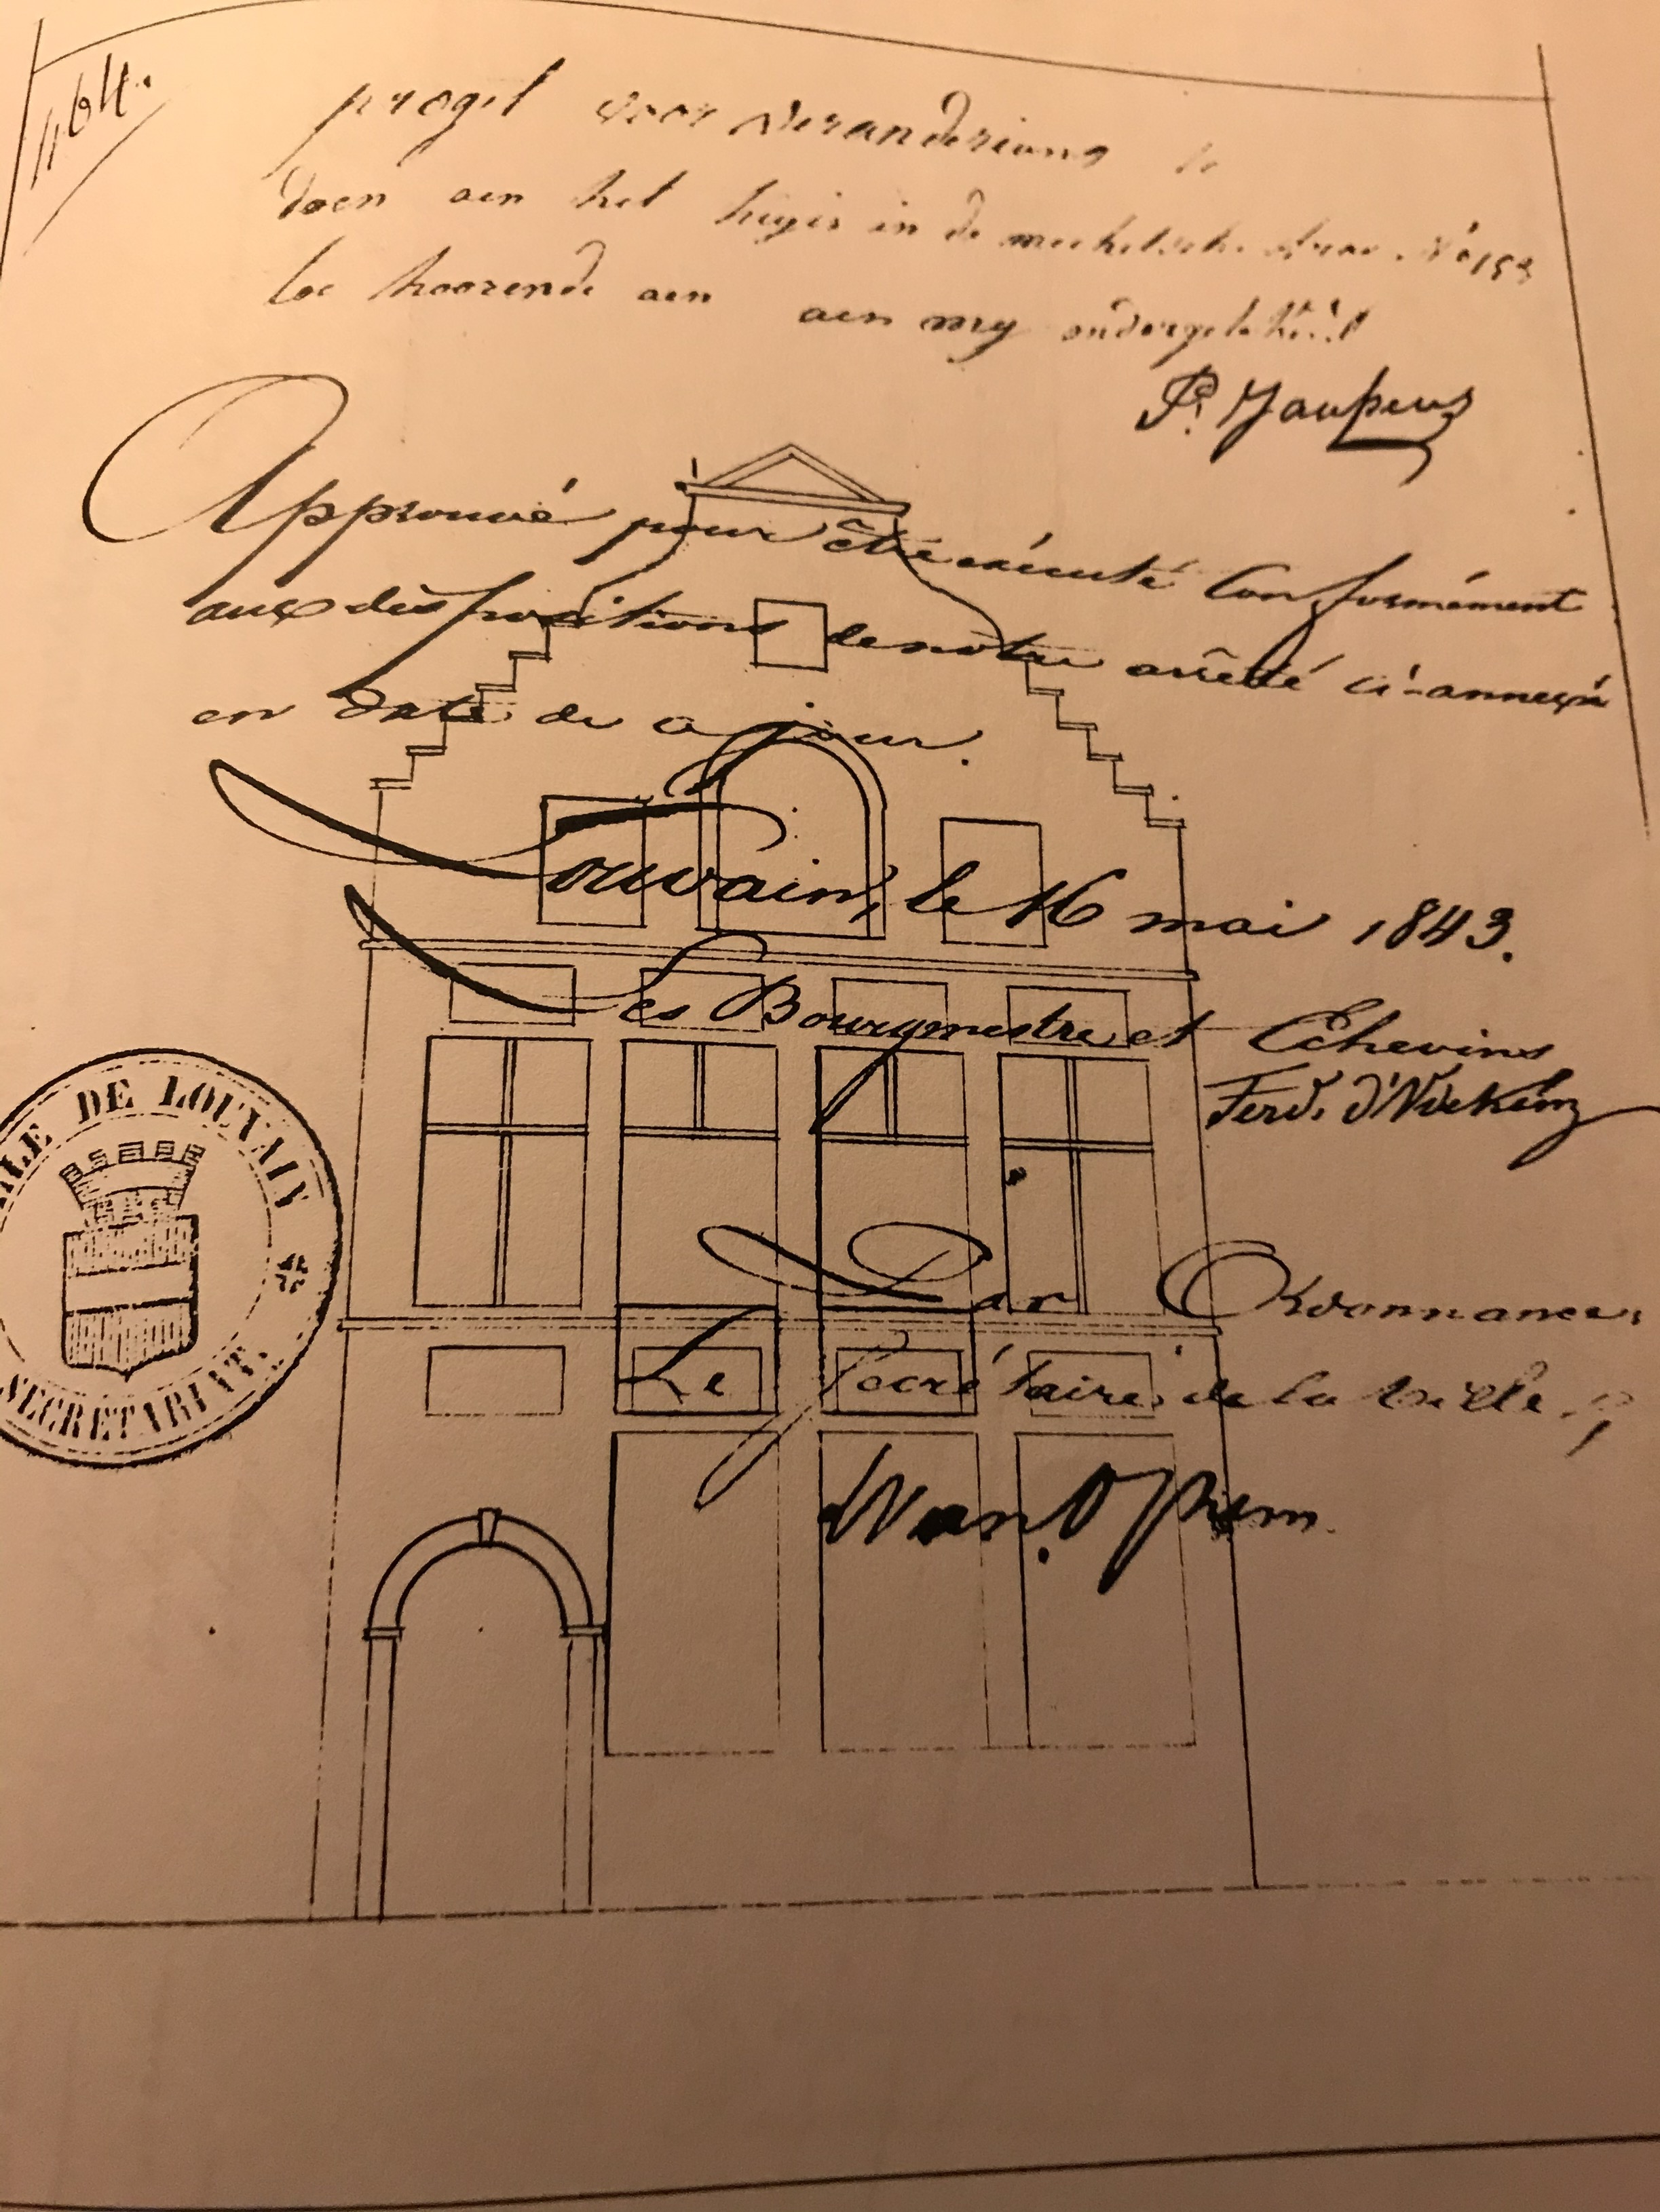 1164.
progel voor veranderiang te
doen aen het huyis in de mechelsche straet N° 153
toe hoorende aen aen my ondergetekent
P. Jaupens
Approuvé pour être exécuté Conformément
aux dispositions de notre arrêté ci-annexé
en date de ce jour.
Louvain, le 16 mai 1843.
Les Bourgmestre et Echevins
Ferd.
VILLE DE LOUVAIN
SECRETARIAT.
Par Ordonnance,
Le Secrétaire de la ville,